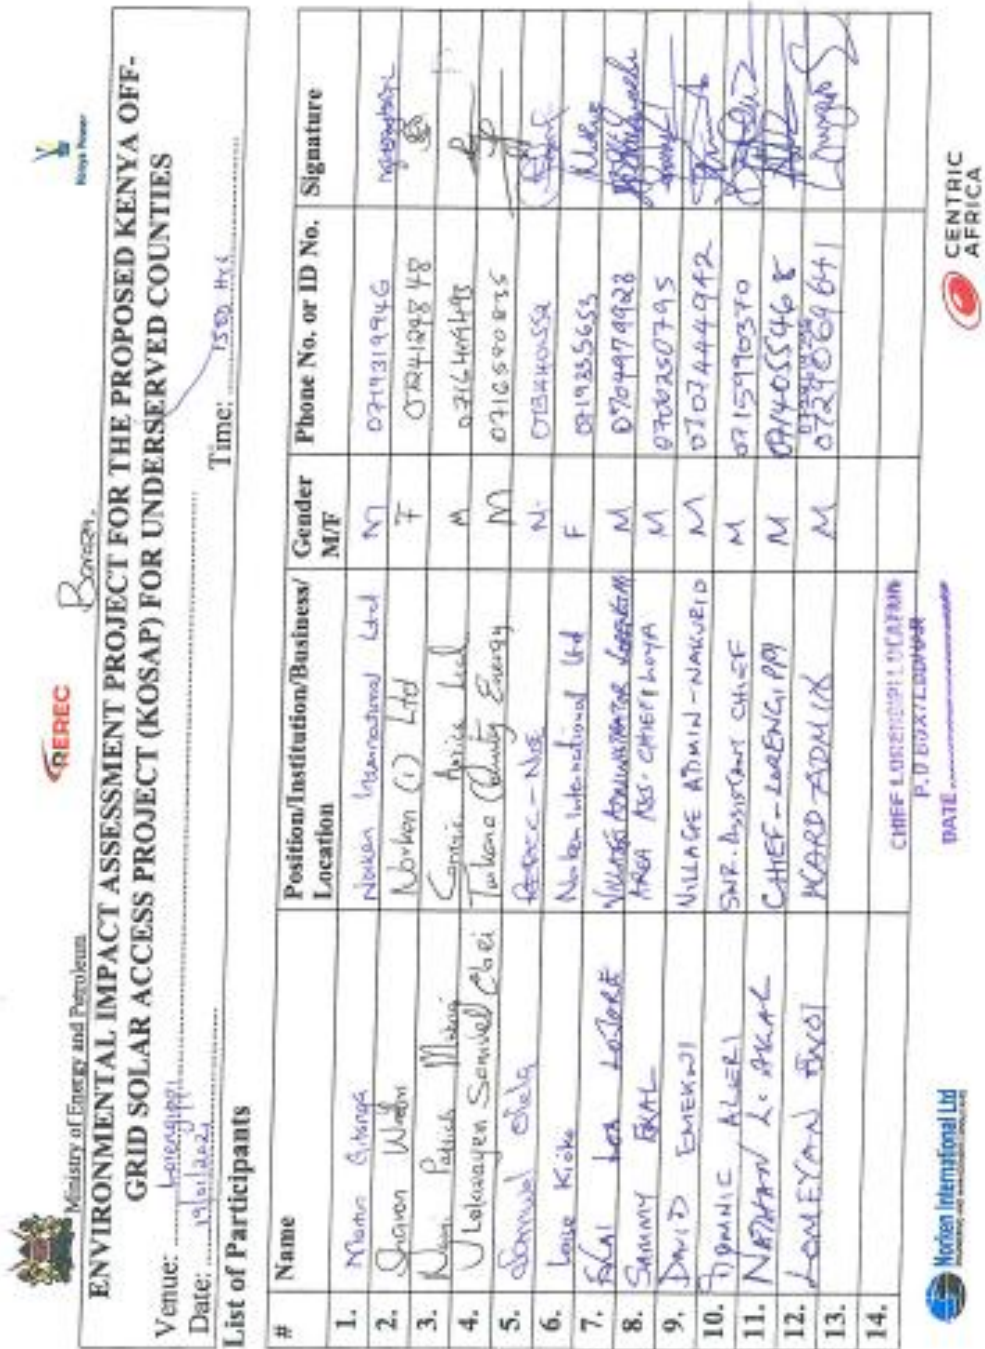 Ministry of Energy and Petroleum
REREC
Kenya Power
ENVIRONMENTAL IMPACT ASSESSMENT PROJECT FOR THE PROPOSED KENYA OFF-
GRID SOLAR ACCESS PROJECT (KOSAP) FOR UNDERSERVED COUNTIES
Venue: Lorengippi
Date: 19/01/2021 Time: 1530 Hrs
List of Participants
# Name Position/Institution/Business/ Location Gender M/F Phone No. or ID No. Signature
1. Martin Gitonga Norken International Ltd M 0719319946
2. Sharon Norken (I) Ltd F 0724129848
3. Patrick Mwangi Centric Africa Ltd M
4. Lokwayen Samuel Ebei Turkana County Energy M 0716590835
5. Samuel M
6. Kioko Norken International Ltd F 0719355653
7. EKAL LOSIORE VILLAGE ADMINISTRATOR M 0704979928
8. SAMMY EKAL AREA ASS. CHIEF LOYA M 0700250795
9. DAVID EMEKWI VILLAGE ADMIN - NAKURIO M 0707444942
10. ALERI SNR. Assistant CHIEF M 0715990370
11. NATHAN L. AKAL CHIEF - LORENGIPPI M 0714055468
12. LOMEYAN EWOI WARD ADMIN M 0729069641
13.
14.
CHIEF LORENGIPPI LOCATION
P.O BOX 1 LODWAR
DATE
Norken International Ltd
CENTRIC
AFRICA